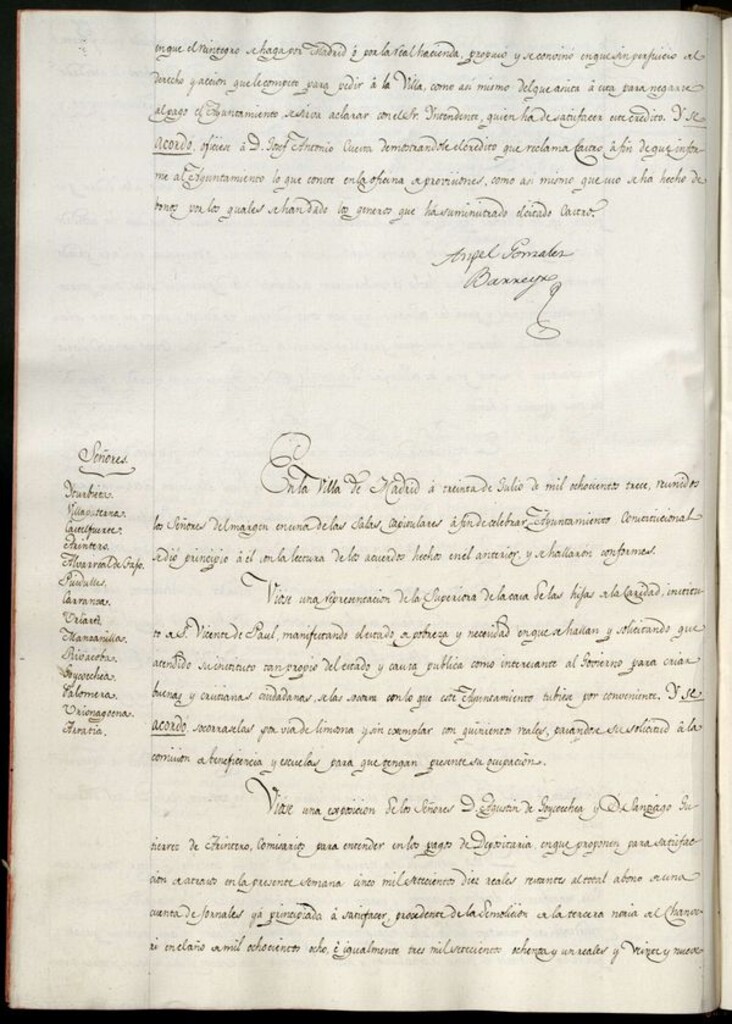 en que el reintegro se haga por Madrid ó por la real hacienda, propuso y se convino en que sin perjuicio al
derecho y accion que le compete para pedir á la Villa, como asi mismo del que asista á esta para negarse
al pago el Ayuntamiento, se sirva aclarar con el Sr. Intendente, quien ha de satisfacer este credito. Y se
acordó, oficiese á D. Josef Antonio Cuesta demostrandole el credito que reclama Castro á fin de que infor-
me al Ayuntamiento lo que conste en la oficina de provisiones, como asi mismo que uso se ha hecho de
bonos por los quales se han dado los generos que ha suministrado el citado Castro.
Angel Gonzalez
Barreyro
Señores.
Yturbieta.
Villapaterna.
Castelfuerte.
Arintero.
Alvarreal de Tajo.
Carranza.
Uriarte.
Manzanilla.
Rivacoba.
Goycochea.
Palomera.
Urionagoena.
Arratia.
En la Villa de Madrid á treinta de Julio de mil ochocientos trece, reunidos
los Señores del margen en una de las Salas capitulares á fin de celebrar Ayuntamiento Constitucional
se dió principio á él con la lectura de los acuerdos hechos en el anterior, y se hallaron conformes.
Viose una representacion de la Superiora de la casa de las hijas de la Caridad, institu-
to de S. Vicente de Paul, manifestando el estado de pobreza y necesidad en que se hallan y solicitando que
atendido su instituto tan propio del estado y causa publica como interesante al Gobierno para criar
buenas y cristianas ciudadanas, se las socorra con lo que este Ayuntamiento tubiese por conveniente. Y se
acordó socorraselas por via de limosna y sin exemplar con quinientos reales, pasandose su solicitud á la
comision de beneficencia y escuelas para que tengan presente su ocupacion.
Viose una exposicion de los Señores D. Agustin de Goycochea y D. Santiago Gu-
tierrez de Arintero, Comisarios para entender en los pagos de Depositaria, en que proponen para satisfac-
cion de atrasos en la presente semana cinco mil setecientos diez reales restantes al total abono de una
cuenta de jornales ya principiada á satisfacer, procedente de la demolicion de la tercera noria del Chanve-
ri en el año de mil ochocientos ocho, é igualmente tres mil setecientos ochenta y un reales y veinte y nueve